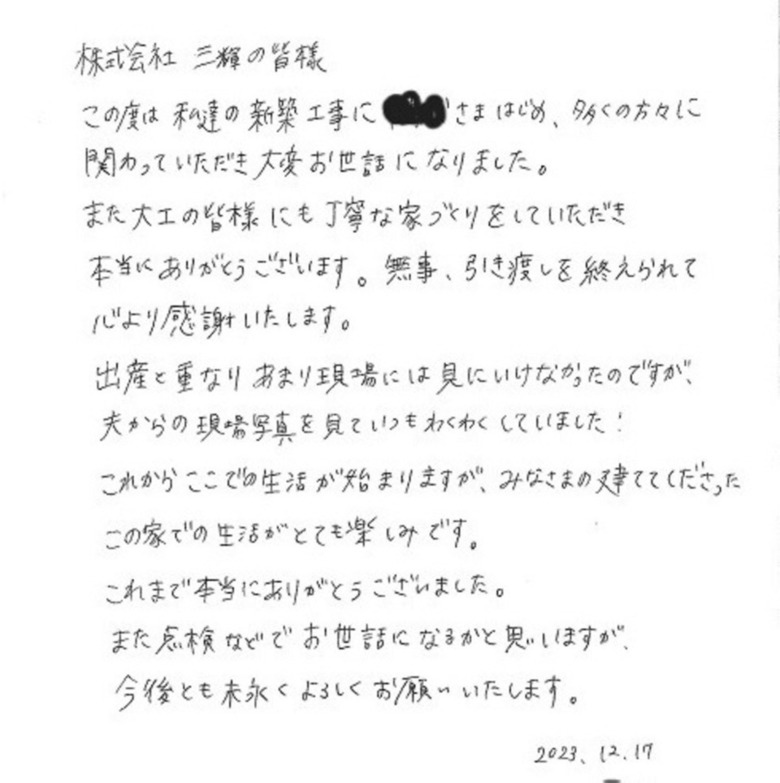 株式会社 三輝の皆様
この度は私達の新築工事に さまはじめ、多くの方々に
関わっていただき大変お世話になりました。
また大工の皆様にも丁寧な家づくりをしていただき
本当にありがとうございます。無事、引き渡しを終えられて
心より感謝いたします。
出産と重なりあまり現場には見にいけなかったのですが、
夫からの現場写真を見ていつもわくわくしていました!
これからここでの生活が始まりますが、みなさまの建ててくださった
この家での生活がとても楽しみです。
これまで本当にありがとうございました。
また点検などでお世話になるかと思いますが、
今後とも末永くよろしくお願いいたします。
2023.12.17